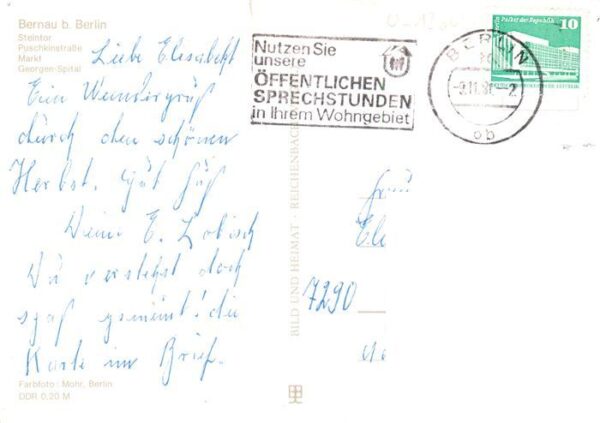 Bernau b. Berlin
Steintor
Puschkinstraße
Markt
Georgen-Spital
Liebe Elisabeth
Ein Wandergruß
durch den schönen
Herbst. Gut Fuß
Deine E. Lobisch
Du verstehst doch
spaß gemeint! die
Karte im Brief.
Farbfoto: Mohr, Berlin
DDR 0,20 M
BILD UND HEIMAT · REICHENBACH
Nutzen Sie
unsere
ÖFFENTLICHEN
SPRECHSTUNDEN
in Ihrem Wohngebiet
BERLIN
-9.11.81-2
ob
Palast der Republik 10
Frau
Eli
7290